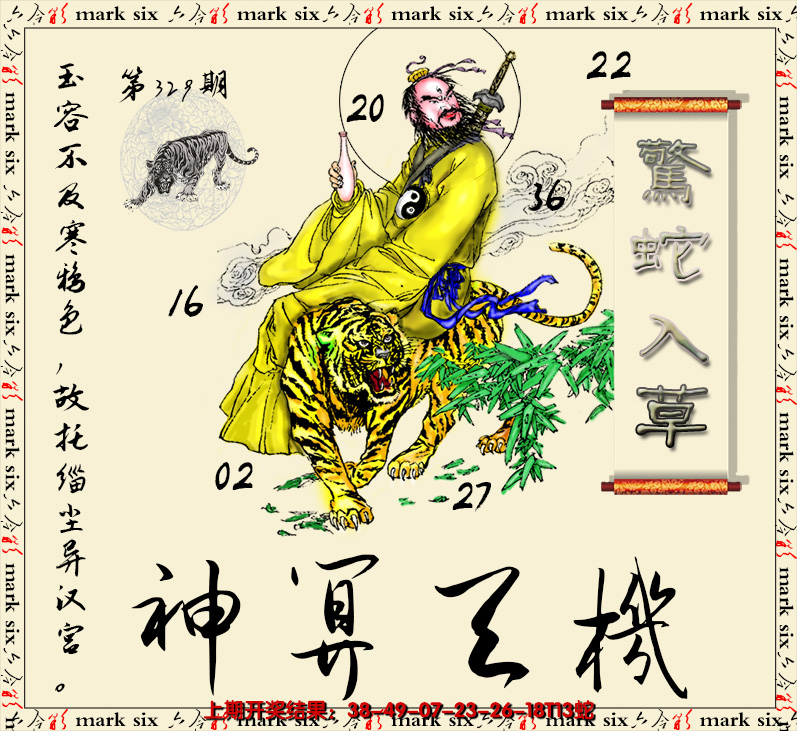 六合彩 mark six 六合彩 mark six 六合彩 mark six 六合彩 mark six 六合彩 mark six
第329期
玉容不及寒鸦色，故托缁尘异汉宫。
22
20
36
16
02
27
驚蛇入草
神算天機
上期开奖结果：38-49-07-23-26-18T13蛇
六合彩 mark six 六合彩 mark six 六合彩 mark six 六合彩 mark six 六合彩 mark six